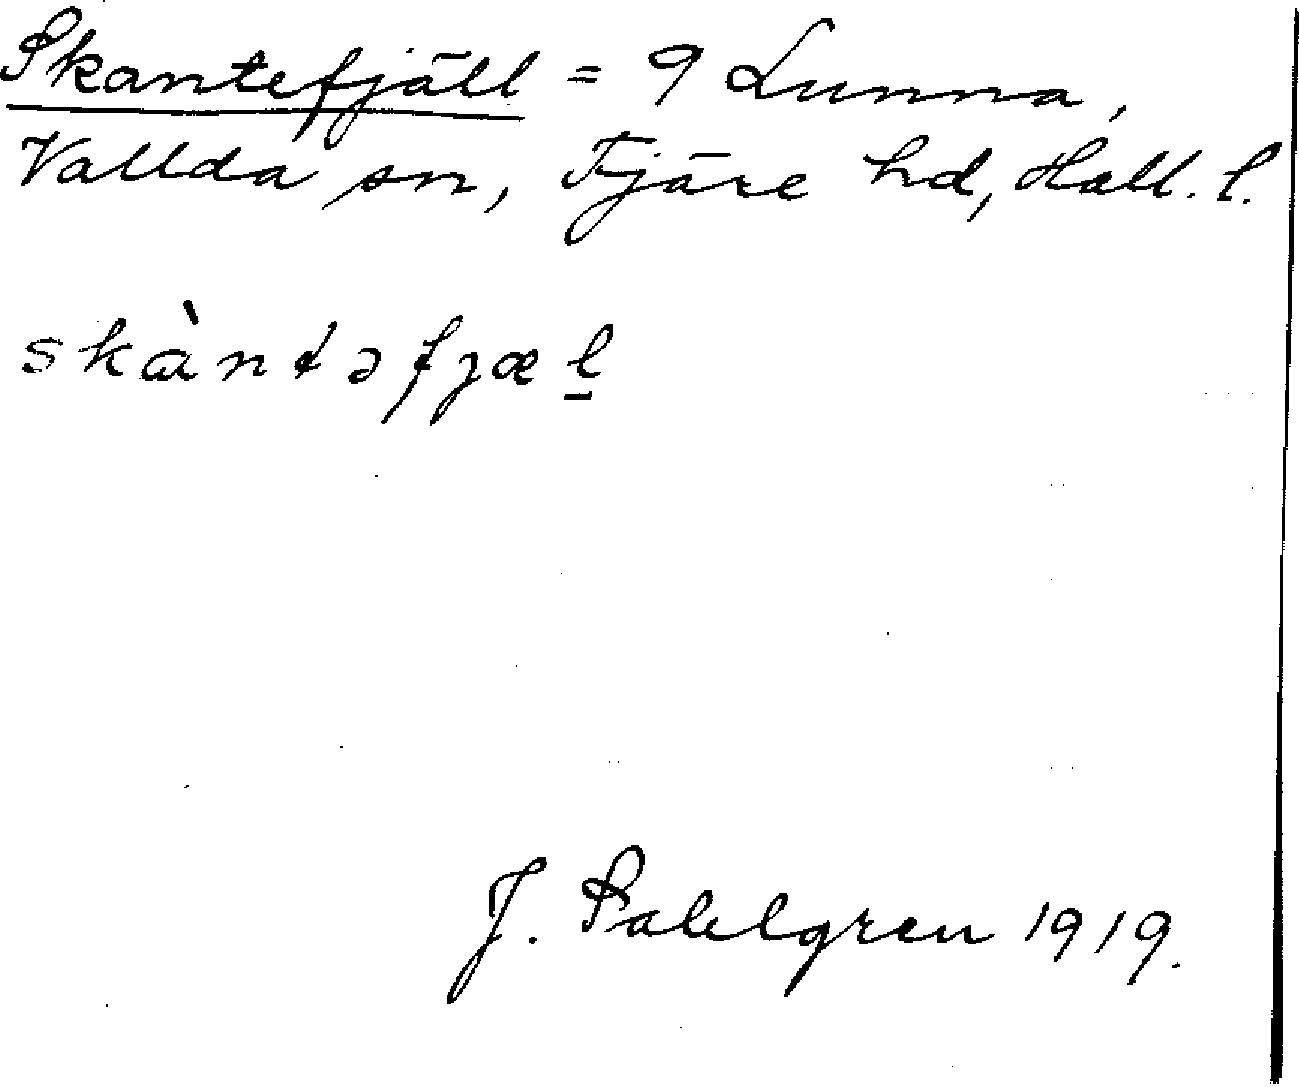 Skantefjäll = 9 Lunna,
Vallda sn, Fjäre hd, Hall. l.
skàntəfjæl̲
J. Sahlgren 1919.